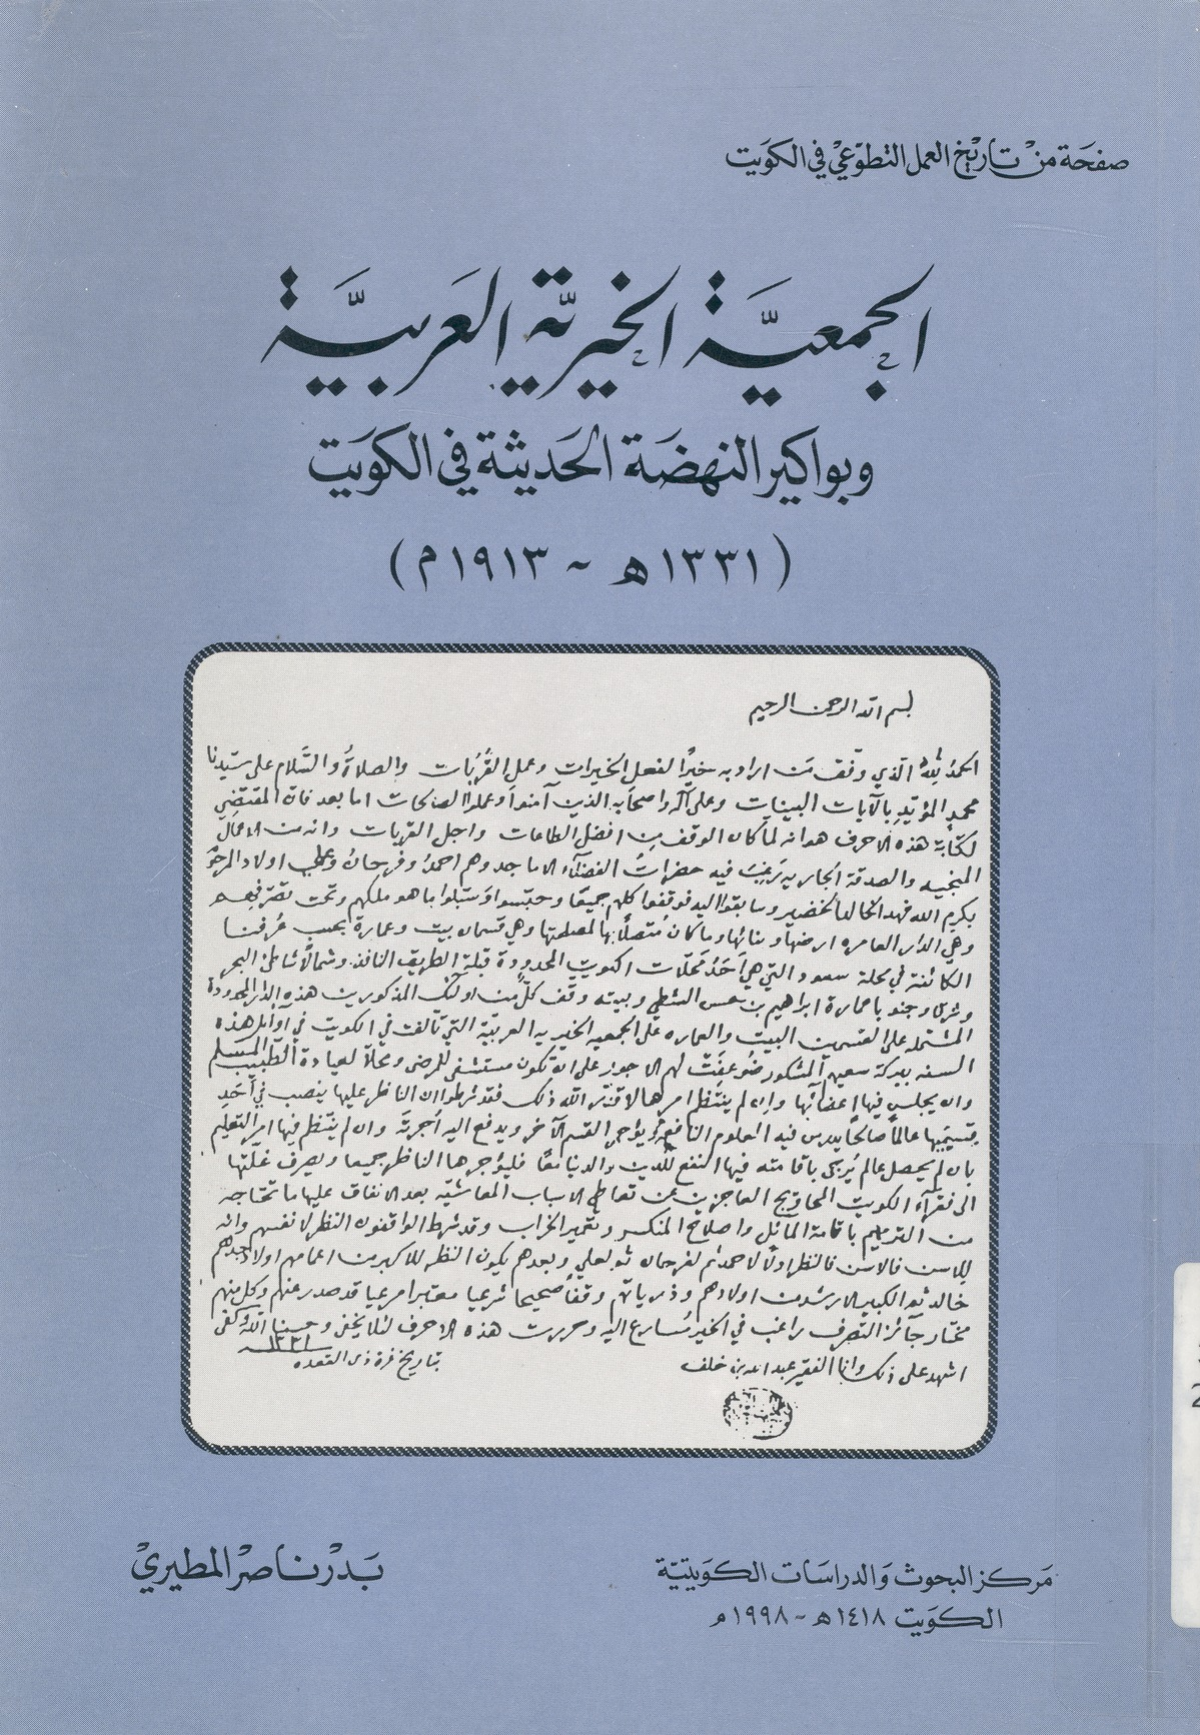 صفحة من تاريخ العمل التطوعي في الكويت
الجمعية الخيرية العربية
وبواكير النهضة الحديثة في الكويت
(١٣٣١ هـ - ١٩١٣ م)
بسم الله الرحمن الرحيم
الحمد لله الذي وفق من اراد به خيرا لفعل الخيرات وعمل القربات والصلاة والسلام على سيدنا
محمد المؤيد بالآيات البينات وعلى آله واصحابه الذين آمنوا وعملوا الصالحات اما بعد فان المقتضي
لكتابة هذه الاحرف هو انه لما كان الوقف من افضل الطاعات واجل القربات وانه من الاعمال
المنجيه والصدقة الجاريه رغب فيه حضرات الفضلاء الاماجد وهم احمد وفرحان وعلي اولاد المرحوم
بكرم الله فهد الخالد الخضير وسابقوا اليه فوقفوا كلهم جميعا وحبسوا وسبلوا ما هو ملكهم وتحت تصرفهم
وهي الدار العامره ارضها وبنائها وما كان متصلا بها لمصلحتها وهي قسمان بيت وعمارة بحسب عرفنا
الكائنة في محلة سعود التي هي احد محلات الكويت المحدودة قبلة الطريق النافذ وشمالا شاطئ البحر
وشرقا وجنوبا عمارة ابراهيم بن الشطي وبيته وقف كل من اولئك المذكورين هذه الدار المحدودة
المشتمله على القسمين البيت والعماره على الجمعيه الخيريه العربية التي تألفت في الكويت في اوائل هذه
السنه ببركة سعيهم المشكور ضوعفت لهم الاجور على ان تكون مستشفى للمرضى ومحلا لعيادة الطبيب المسلم
وان يجلس فيها اعضائها وان لم ينتظم امرها لا قدر الله ذلك فقد شرطوا ان الناظر عليها ينصب في احد
قسميها عالما صالحا يدرس فيه العلوم النافعة ويؤجر القسم الآخر ويدفع اليه اجرته وان لم ينتظم فيها امر التعليم
بان لم يحصل عالم يرجى باقامته فيها النفع للدين والدنيا معا فليؤجرها الناظر جميعا ويصرف غلتها
الى فقراء الكويت المحاويج العاجزين عن تعاطي الاسباب المعاشيه بعد الانفاق عليها ما تحتاجه
من الترميم باقامة المائل واصلاح المنكسر وتعمير الخراب وقد شرط الواقفون النظر لانفسهم وانه
للاسن فالاسن فالنظر اولا لاحمد ثم لفرحان ثم لعلي وبعدهم يكون النظر للاكبر من اعمامهم اولاد جدهم
خالد ثم الكبير الارشد من اولادهم وذرياتهم وقفا صحيحا شرعيا معتبرا مرعيا قد صدر عنهم وكل منهم
مختار جائز التصرف راغب في الخير مسارع اليه وحررت هذه الاحرف لئلا يخفى وحسبنا الله وكفى
اشهد على ذلك وانا الفقير عبد الله بن خلف
بتاريخ غرة ذي القعده ١٣٣١
بدر ناصر المطيري
مركز البحوث والدراسات الكويتية
الكويت ١٤١٨ هـ - ١٩٩٨ م